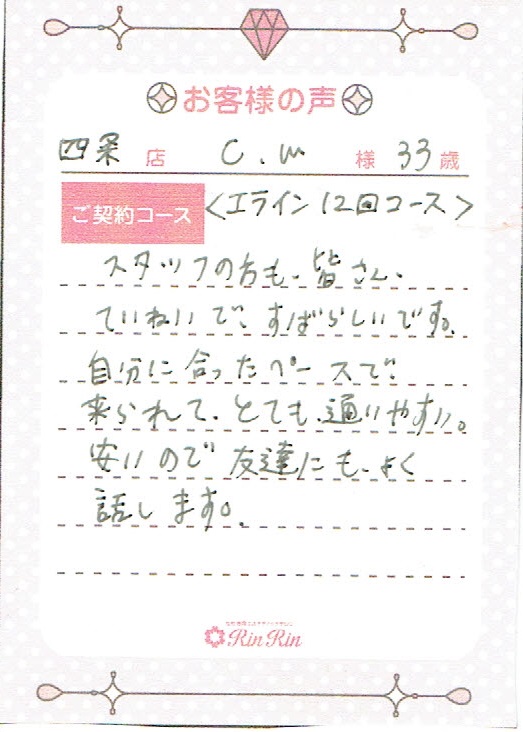 お客様の声
四条 店 C.M 様 33 歳
ご契約コース <エライン12回コース>
スタッフの方も、皆さん、
ていねいで、すばらしいです。
自分に合ったペースで
来られて、とても、通いやすい。
安いので友達にも、よく
話します。
RinRin